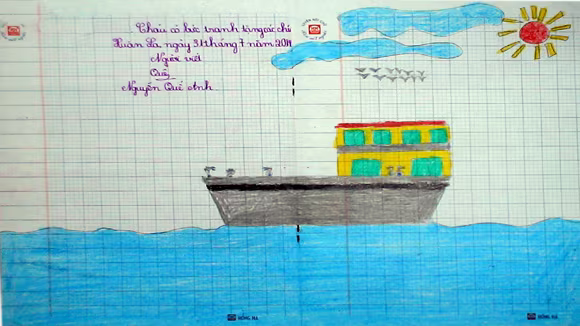 Cháu có bức tranh tặng các chú
Xuân La, ngày 31 tháng 7 năm 2011
Người viết
Quế
Nguyễn Quế Anh
HỒNG HÀ
HỒNG HÀ